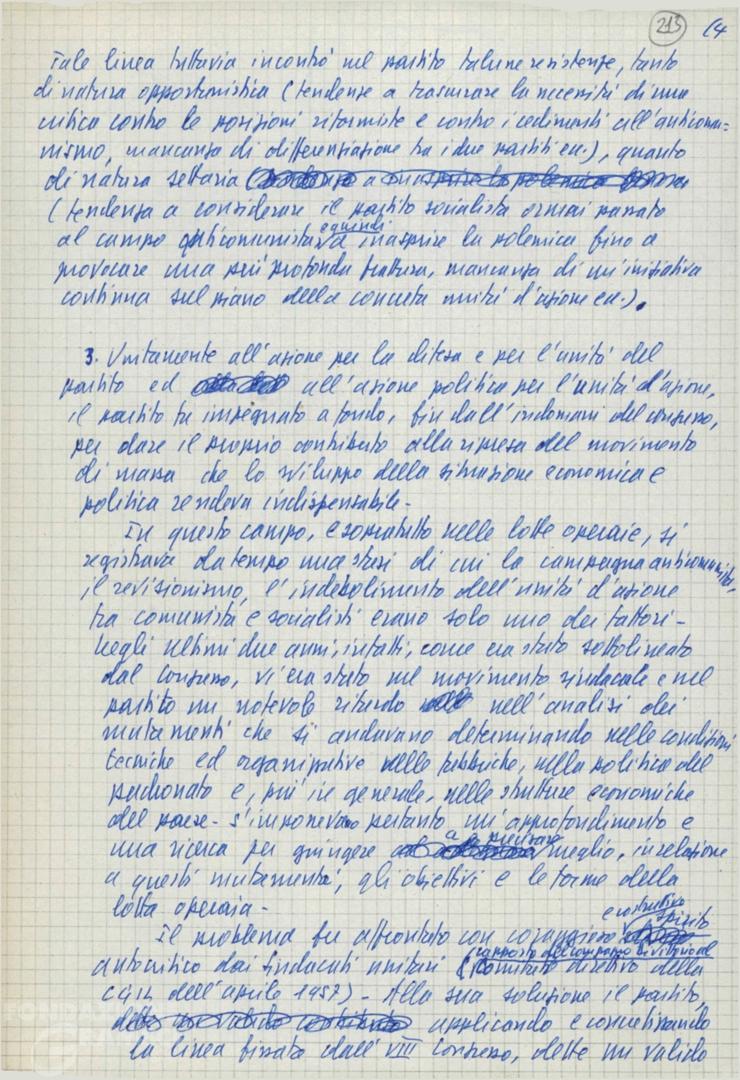 213 14
Tale linea tuttavia incontrò nel partito talune resistenze, tanto
di natura opportunistica (tendenze a trascurare la necessità di una
critica contro le posizioni riformiste e contro i cedimenti all'anticomu-
nismo, mancanza di differenziazione tra i due partiti ecc.), quanto
di natura settaria
(tendenza a considerare il partito socialista ormai passato
al campo anticomunista e quindi a inasprire la polemica fino a
provocare una più profonda frattura, mancanza di un'iniziativa
continua sul piano della concreta unità d'azione ecc.).
3. Unitamente all'azione per la difesa e per l'unità del
partito ed all'azione politica per l'unità d'azione,
il partito fu impegnato a fondo, fin dall'indomani del congresso,
per dare il proprio contributo alla ripresa del movimento
di massa che lo sviluppo della situazione economica e
politica rendeva indispensabile-
In questo campo, e sopratutto nelle lotte operaie, si
registrava da tempo una stasi di cui la campagna anticomunista,
il revisionismo, l'indebolimento dell'unità d'azione
tra comunisti e socialisti erano solo uno dei fattori-
Negli ultimi due anni, infatti, come era stato sottolineato
dal congresso, vi era stato nel movimento sindacale e nel
partito un notevole ritardo nell'analisi dei
mutamenti che si andavano determinando nelle condizioni
tecniche ed organizzative nelle fabbriche, nella politica del
padronato e, più in generale, nelle strutture economiche
del paese- S'imponevano pertanto un'approfondimento e
una ricerca per giungere a precisare meglio, in relazione
a questi mutamenti, gli obiettivi e le forme della
lotta operaia-
Il problema fu affrontato con coraggioso e costruttivo spirito
autocritico dai sindacati unitari (rapporto del compagno Di Vittorio al Comitato direttivo della
CGIL dell'aprile 1957)- Alla sua soluzione il partito,
applicando e concretizzando
la linea fissata dall'VIII congresso, dette un valido